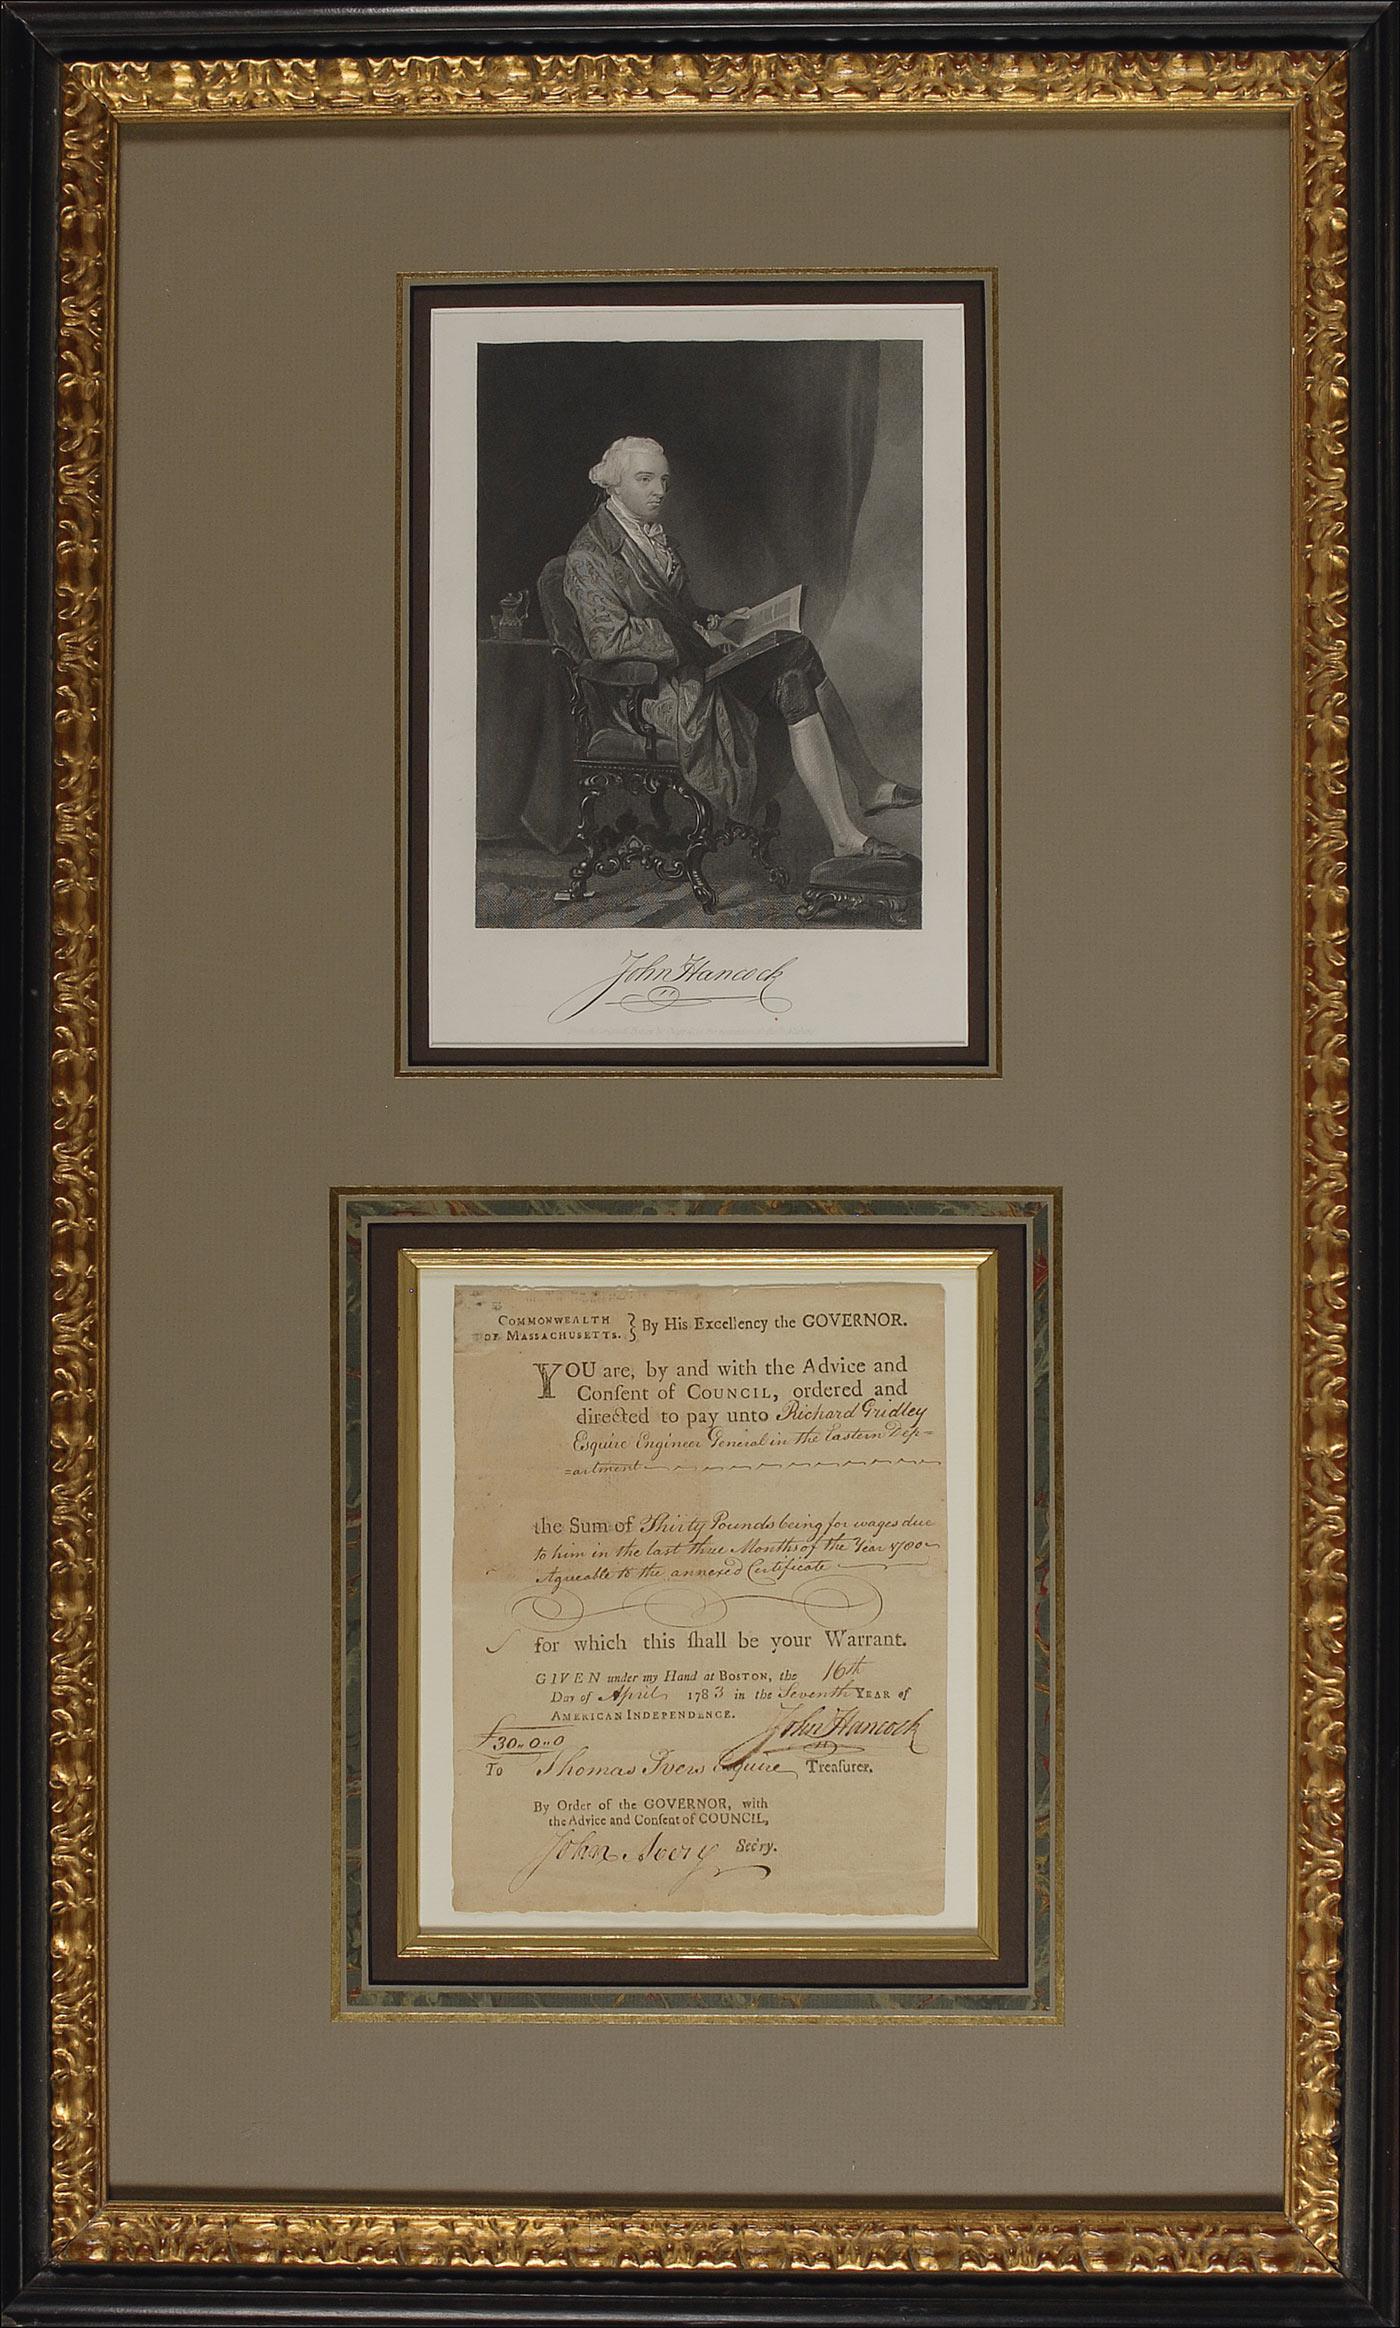 John Hancock
COMMONWEALTH
OF MASSACHUSETTS.
} By His Excellency the GOVERNOR.
YOU are, by and with the Advice and
Conſent of COUNCIL, ordered and
directed to pay unto Richard Gridley
Esquire Engineer General in the Eastern Dep=
=artment
the Sum of Thirty Pounds being for wages due
to him in the last three Months of the Year 1780
Agreeable to the annexed Certificate
for which this ſhall be your Warrant.
GIVEN under my Hand at BOSTON, the 16th
Day of April 1783 in the Seventh YEAR of
AMERICAN INDEPENDENCE.
John Hancock
£30..0..0
To Thomas Ivers Esquire Treaſurer.
By Order of the GOVERNOR, with
the Advice and Conſent of COUNCIL,
John Avery Sec'ry.